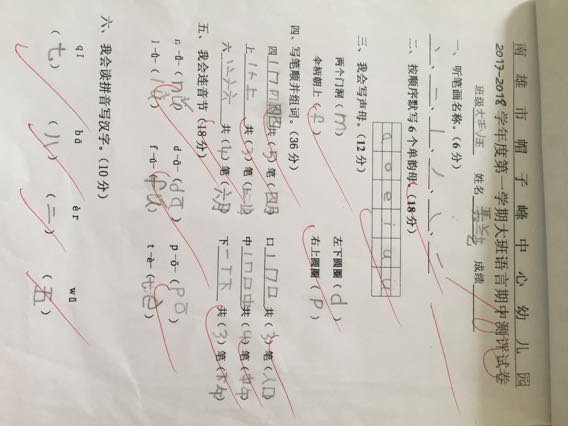 南雄市帽子峰中心幼儿园
2017-2018学年度第一学期大班语言期中测评试卷
班级 大 班 姓名 成绩
一、听笔画名称。(6分)
二、按顺序默写6个单韵母。(18分)
a o e i u
三、我会写声母。(12分)
两个门洞(m) 左下圆圈(d)
伞柄朝上(f) 右上圆圈(p)
四、写笔顺并组词。(36分)
四 共(5)笔(四月) 口 共(3)笔(人口)
上 共(3)笔(上山) 中 共(4)笔
六 共(4)笔(六月) 下 共(3)笔
五、我会连音节(18分)
n-ǔ-( ) d-ā-(dā) p-ō-(pō)
l-ǜ-( ) f-ú-(fú) t-è-(tè)
六、我会读拼音写汉字。(10分)
qī bā èr wǔ
(七) (八) (二) (五)